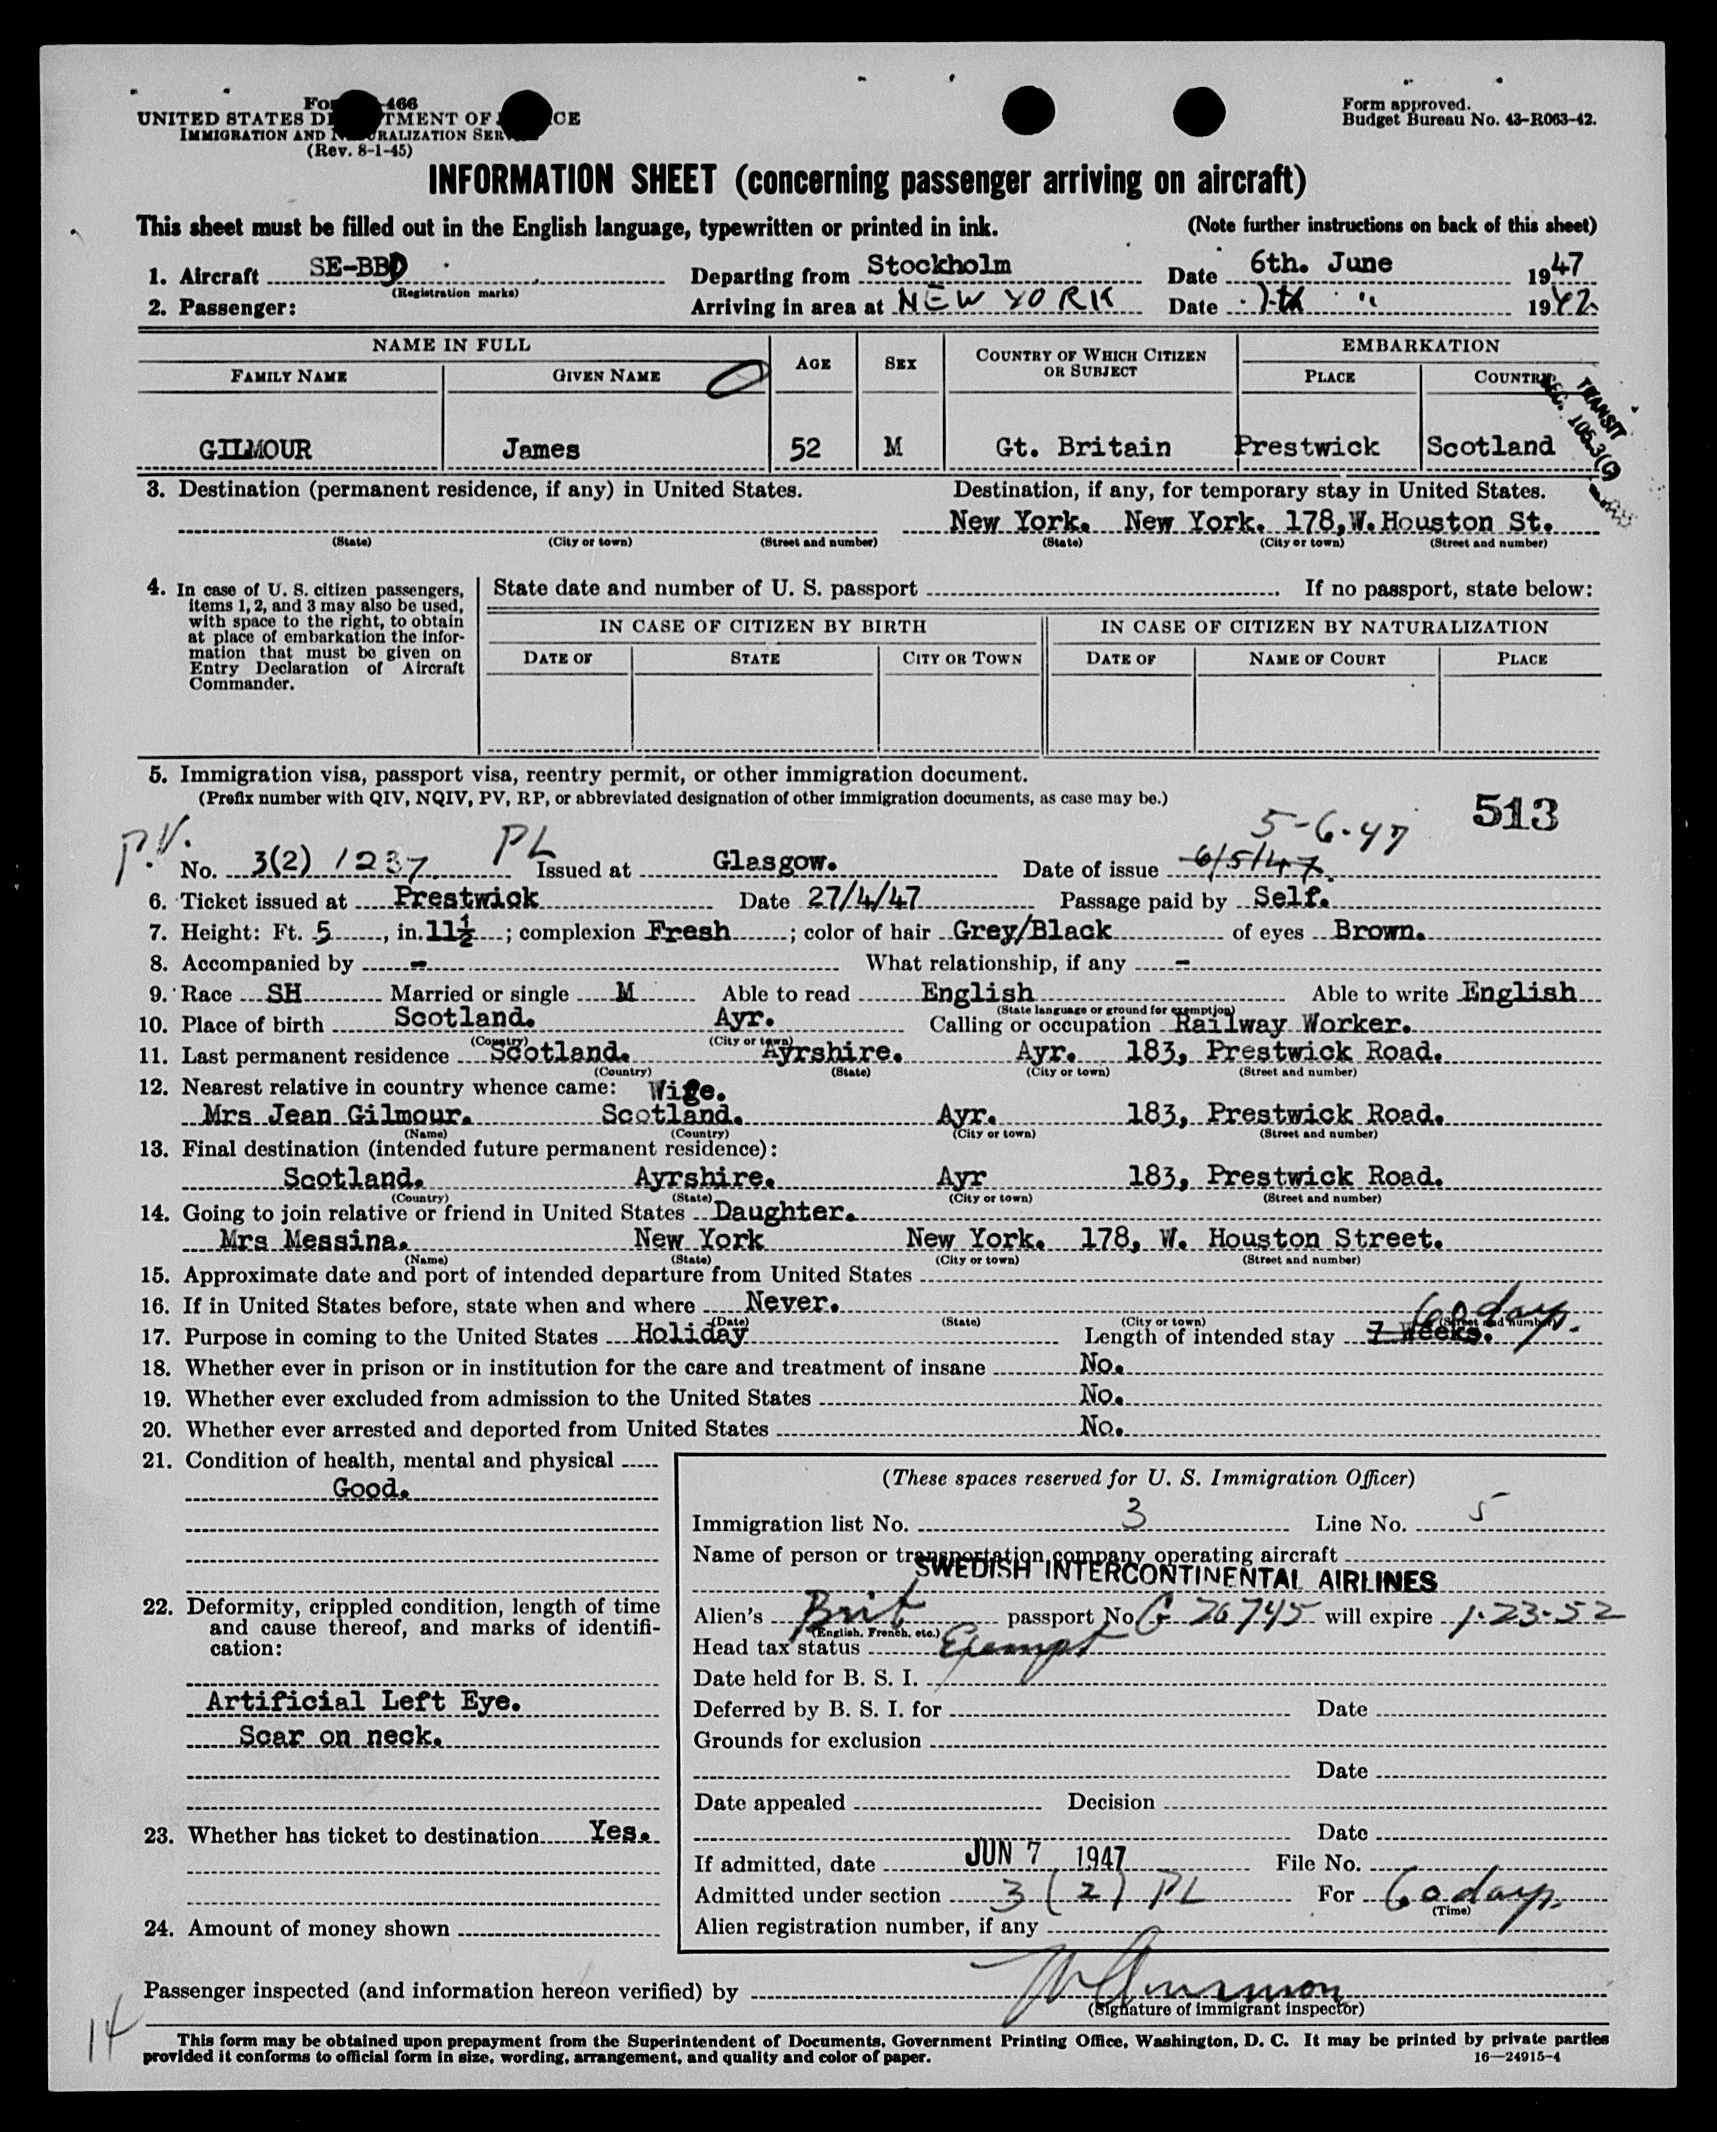 Form approved.
Budget Bureau No. 43-R063-42.
-466
UNITED STATES
IMMIGRATION AND
(Rev. 8-1-45)
INFORMATION SHEET (concerning passenger arriving on aircraft)
This sheet must be filled out in the English language, typewritten or printed in ink. (Note further instructions on back of this sheet)
1. Aircraft SE-BBD Departing from Stockholm Date 6th. June 1947
(Registration marks)
2. Passenger: Arriving in area at NEW YORK Date 7th " 1947
NAME IN FULL AGE SEX COUNTRY OF WHICH CITIZEN OR SUBJECT EMBARKATION
FAMILY NAME GIVEN NAME PLACE COUNTRY
TRANSIT
SEC. 105.3(C)
GILMOUR James 52 M Gt. Britain Prestwick Scotland
3. Destination (permanent residence, if any) in United States. Destination, if any, for temporary stay in United States.
New York. New York. 178, W. Houston St.
(State) (City or town) (Street and number) (State) (City or town) (Street and number)
4. In case of U. S. citizen passengers, items 1, 2, and 3 may also be used, with space to the right, to obtain at place of embarkation the information that must be given on Entry Declaration of Aircraft Commander.
State date and number of U. S. passport If no passport, state below:
IN CASE OF CITIZEN BY BIRTH IN CASE OF CITIZEN BY NATURALIZATION
DATE OF STATE CITY OR TOWN DATE OF NAME OF COURT PLACE
5. Immigration visa, passport visa, reentry permit, or other immigration document.
(Prefix number with QIV, NQIV, PV, RP, or abbreviated designation of other immigration documents, as case may be.)
513
5-6-47
P.V. No. 3(2) 1237. PL Issued at Glasgow. Date of issue 6/5/47.
6. Ticket issued at Prestwick Date 27/4/47 Passage paid by Self.
7. Height: Ft. 5, in. 11½; complexion Fresh; color of hair Grey/Black of eyes Brown.
8. Accompanied by - What relationship, if any -
9. Race SH Married or single M Able to read English Able to write English
(State language or ground for exemption)
10. Place of birth Scotland. Ayr. Calling or occupation Railway Worker.
(Country) (City or town)
11. Last permanent residence Scotland. Ayrshire. Ayr. 183, Prestwick Road.
(Country) (State) (City or town) (Street and number)
12. Nearest relative in country whence came: Wife.
Mrs Jean Gilmour. Scotland. Ayr. 183, Prestwick Road.
(Name) (Country) (City or town) (Street and number)
13. Final destination (intended future permanent residence):
Scotland. Ayrshire. Ayr 183, Prestwick Road.
(Country) (State) (City or town) (Street and number)
14. Going to join relative or friend in United States Daughter.
Mrs Messina. New York New York. 178, W. Houston Street.
(Name) (State) (City or town) (Street and number)
15. Approximate date and port of intended departure from United States
16. If in United States before, state when and where Never.
(Date) (State) (City or town) (Street and number)
60 days.
17. Purpose in coming to the United States Holiday Length of intended stay 7 Weeks.
18. Whether ever in prison or in institution for the care and treatment of insane No.
19. Whether ever excluded from admission to the United States No.
20. Whether ever arrested and deported from United States No.
21. Condition of health, mental and physical
Good.
22. Deformity, crippled condition, length of time and cause thereof, and marks of identification:
Artificial Left Eye.
Scar on neck.
23. Whether has ticket to destination Yes.
24. Amount of money shown
(These spaces reserved for U. S. Immigration Officer)
Immigration list No. 3 Line No. 5
Name of person or transportation company operating aircraft
SWEDISH INTERCONTINENTAL AIRLINES
Alien's Brit passport No. G 76745 will expire 1-23-52
(English, French, etc.)
Head tax status Exempt
Date held for B. S. I.
Deferred by B. S. I. for Date
Grounds for exclusion
Date
Date appealed Decision
Date
If admitted, date JUN 7 1947 File No.
Admitted under section 3(2) PL For 60 days.
(Time)
Alien registration number, if any
Passenger inspected (and information hereon verified) by
(Signature of immigrant inspector)
14
This form may be obtained upon prepayment from the Superintendent of Documents, Government Printing Office, Washington, D. C. It may be printed by private parties
provided it conforms to official form in size, wording, arrangement, and quality and color of paper. 16—24915-4